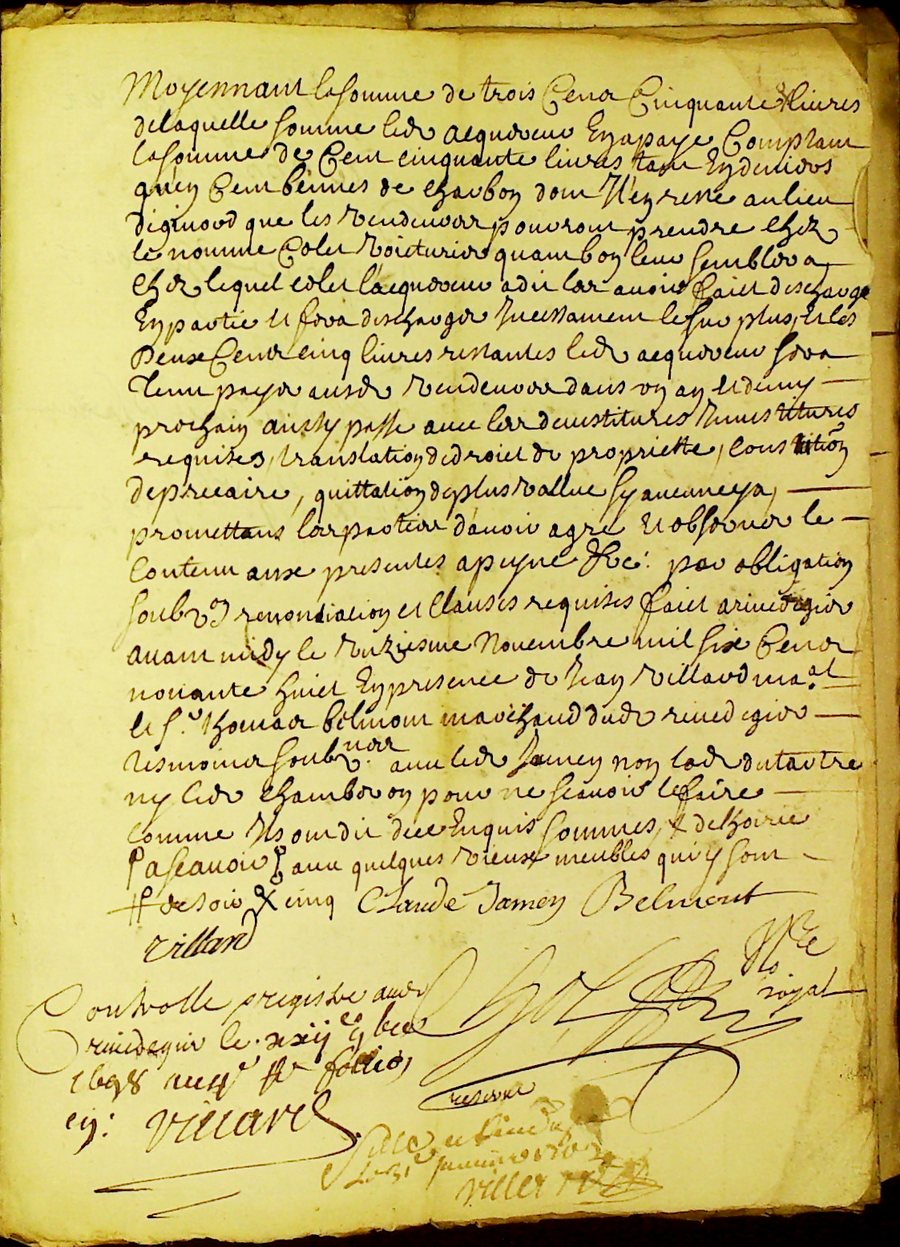 Moyennant la somme de trois Cens Cinquante livres
de laquelle somme led acquereur En a payé Comptant
la somme de Cent cinquante livres tant En deniers
qu'en Cent bennes de charbon dont Il en reste au lieu
que les vendeurs pourront prendre chez
le nommé Colet voicturier quant bon leur semblera
Chez lequel colet l'acquereur a dit leur avoir faict descharge
En partie et fera descharger Incessament le surplus, Et les
Deux Cens cinq livres restantes led acquereur sera
Tenu payer ausd vendeurs dans un an et demy
prochain ainsy passé avec les devestitures Investitures
requises, translation de droict de proprietté, constitution
de precaire, quittation de plus vallue sy aucune y a,
promettans les parties d'avoir agreé Et observer le
Contenu aux presentes a peyne &c: par obligation
renonciation et Clauses requises faict a rivedegier
avant midy le Novembre mil six Cens
nonante huict En presence de Jean Villard
et Sr. thomas belmont marchand dud rivedegier
tesmoins soubznes avec led Jamen non lad dutartre
ny led chambeyron pour ne scavoir le faire
comme Ils ont dit de ce Enquis sommés, & de
a scavoir avec quelques vieux meubles qui y sont
cinq Claude Jamen Belmont
villard
royal
Controllé & registré aud
rivedegier le xxij 9bre
1698 folio
villard